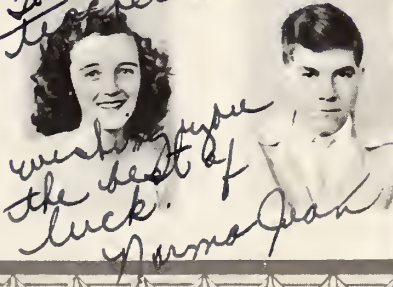 teacher
wishing you
the best of
luck.
Norma Jean